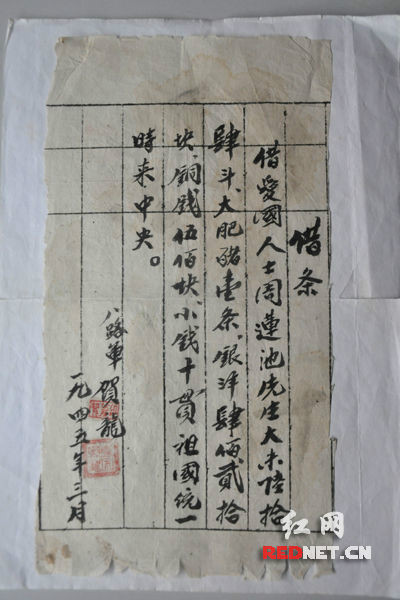 借条
借爱國人士周蓮池先生大米陸拾
肆斗、大肥豬壹条、銀洋肆佰貳拾
块、銅錢伍佰块、小錢十貫、祖國統一
時来中央。
八路軍 賀龍
一九四五年三月
红网
REDNET.CN